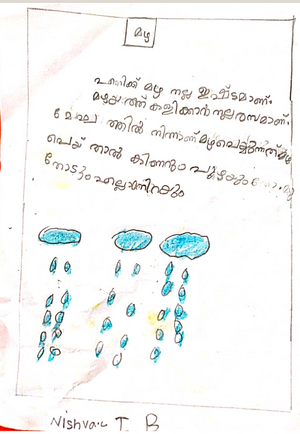 മഴ
എനിക്ക് മഴ നല്ല ഇഷ്ടമാണ്.
മഴയത്ത് കളിക്കാൻ നല്ലരസമാണ്.
മേഘത്തിൽ നിന്നാണ് മഴപെയ്യുന്നത് മഴ
പെയ് താൽ കിണറും പുഴയും
തോടും എല്ലാംനിറയും
Nishval T B